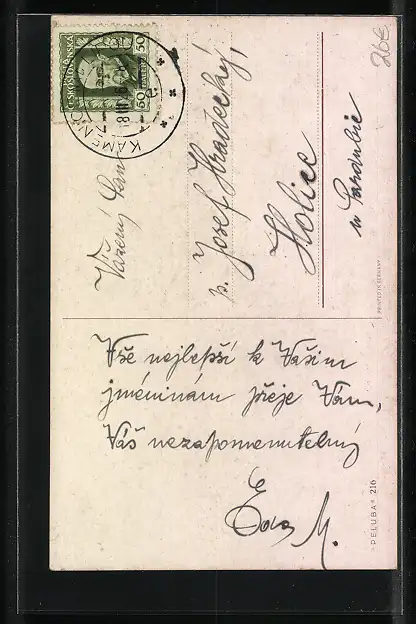 Vše nejlepší k Vašim
jmeninám přeje Vám,
Váš nezapomenutelný
Eda M.
Vážený Pan
p. Josef Hradecký,
Holice
u Pardubic
ČESKOSLOVENSKÁ
50 50
KAMENIC
PRINTED IN GERMANY
"PELUBA" 216
26€